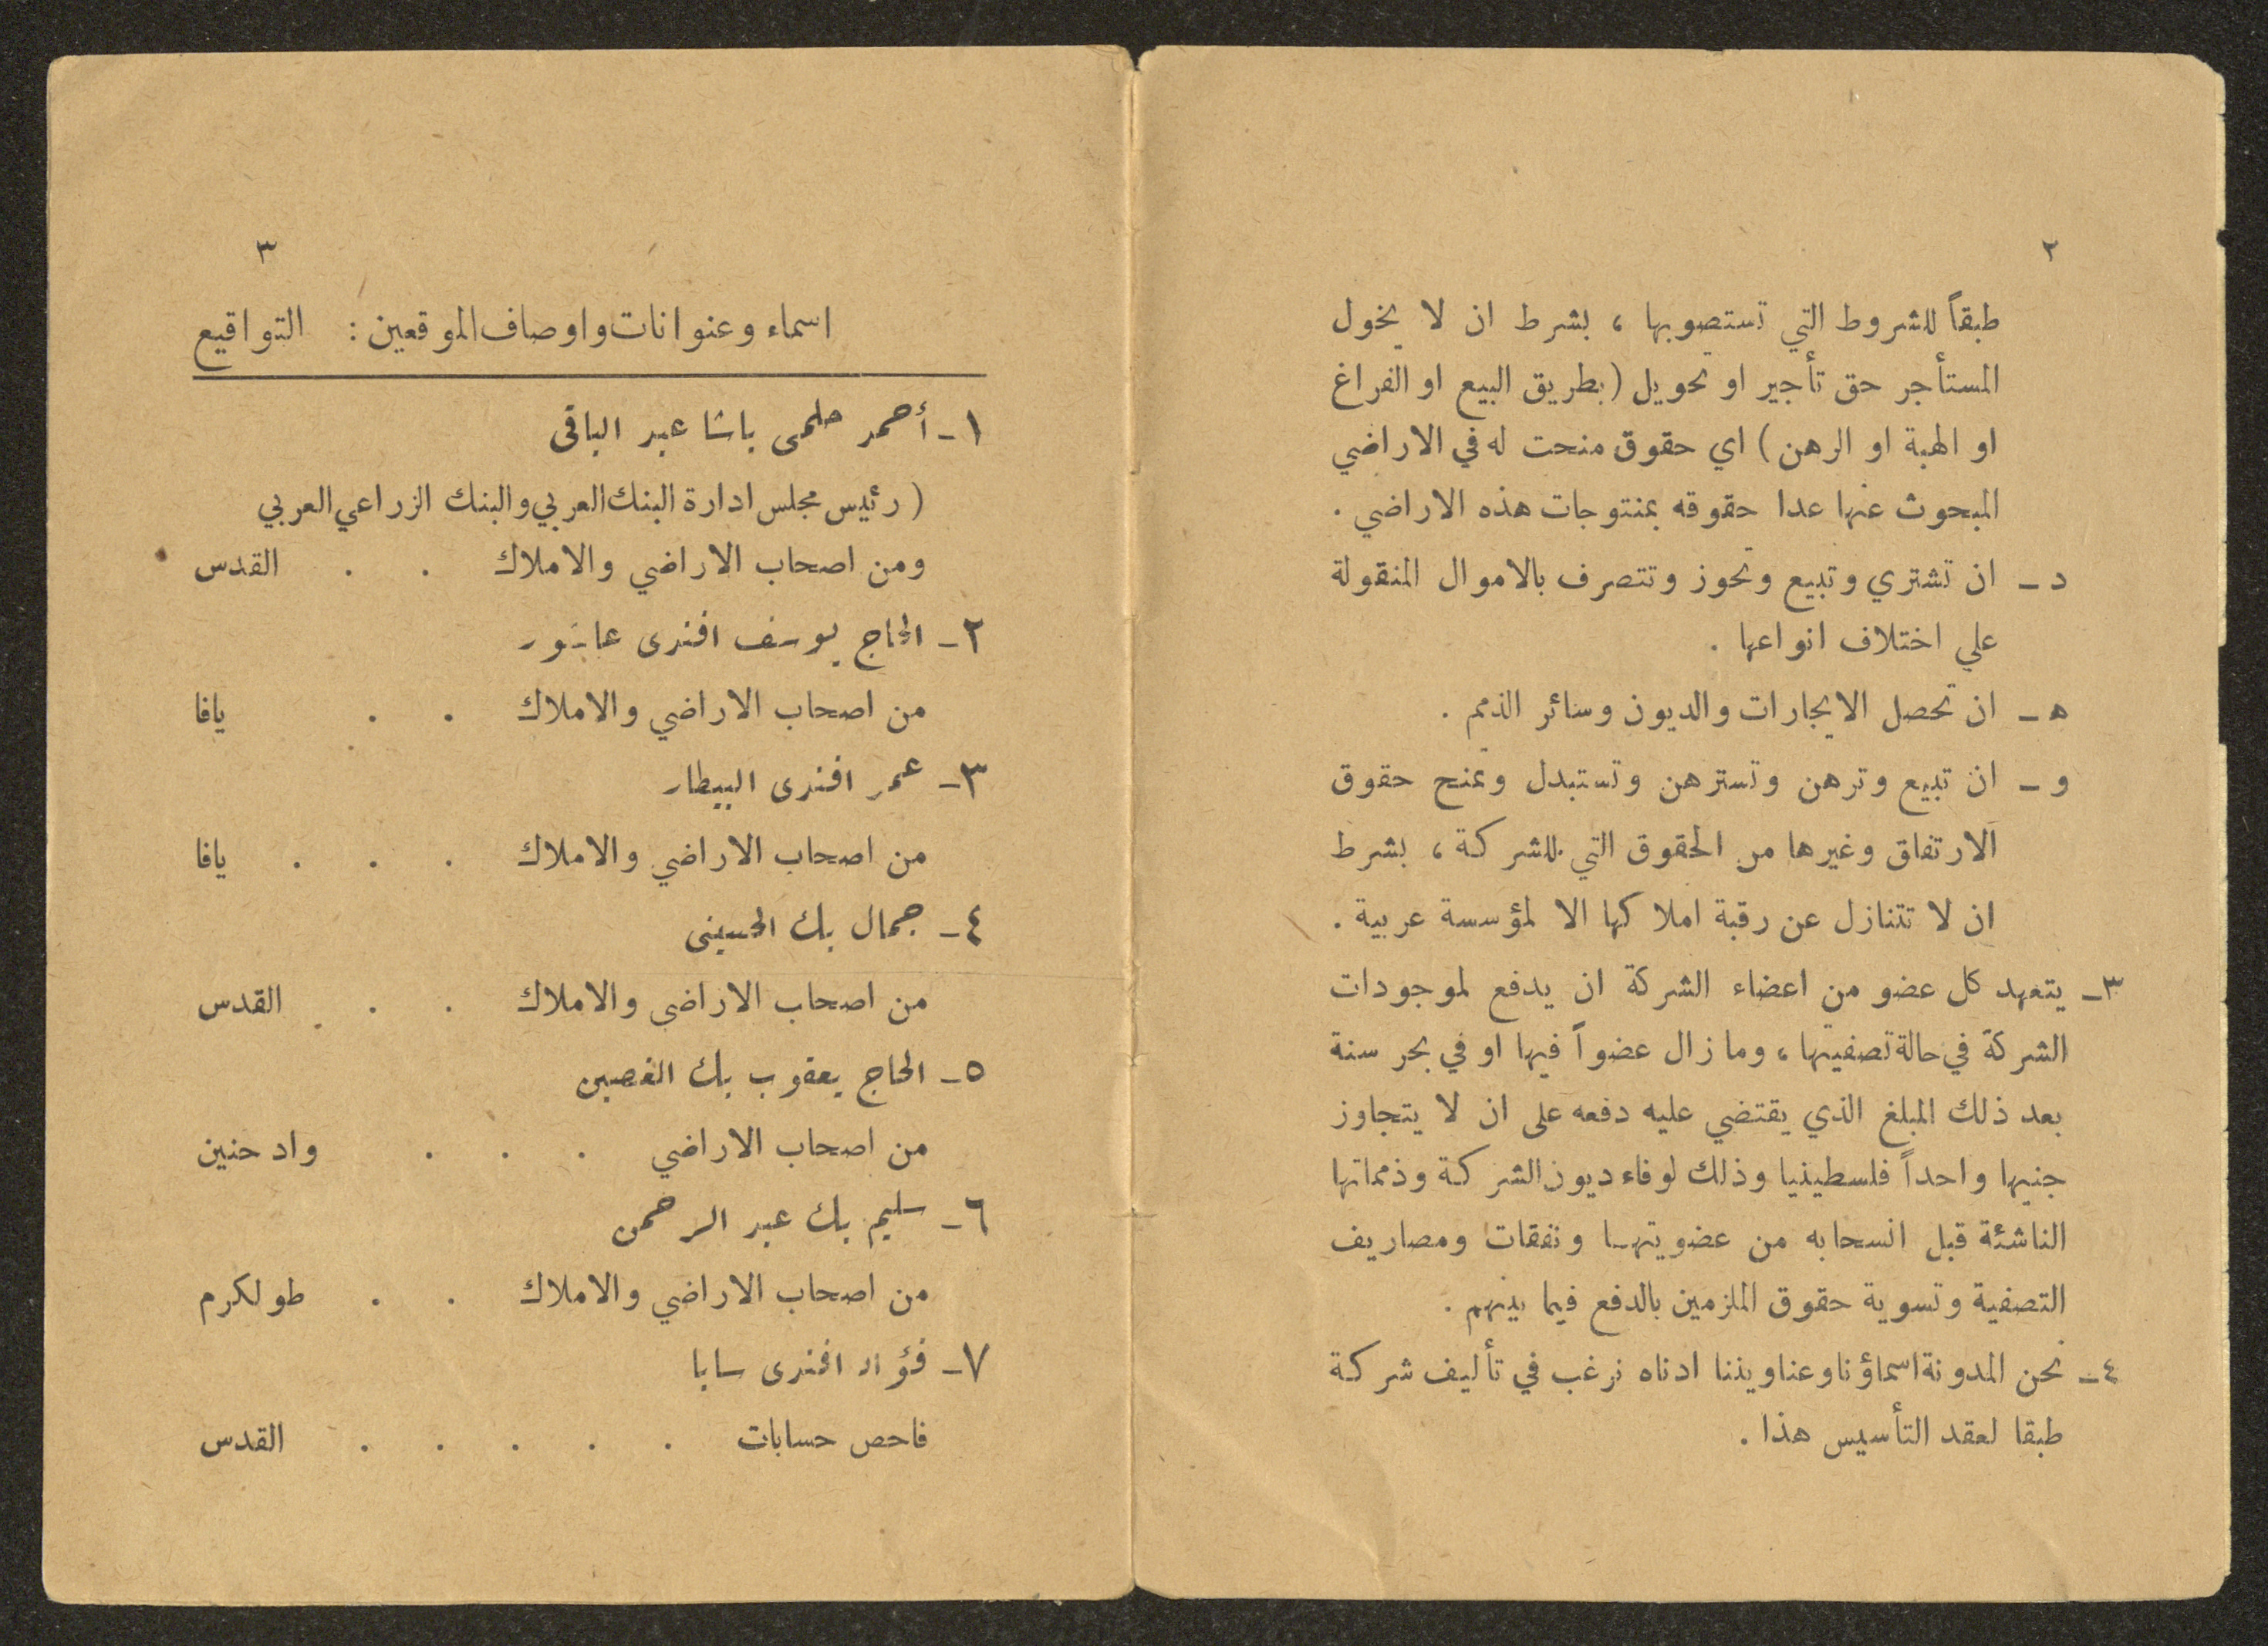 ٢
طبقاً للشروط التي تستصوبها ، بشرط ان لا يخول
المستأجر حق تأجير او تحويل ( بطريق البيع او الفراغ
او الهبة او الرهن ) اي حقوق منحت له في الاراضي
المبحوث عنها عدا حقوقه بمنتوجات هذه الاراضي .
د ـ ان تشتري وتبيع وتحوز وتتصرف بالاموال المنقولة
علي اختلاف انواعها .
ه ـ ان تحصل الايجارات والديون وسائر الذمم .
و ـ ان تبيع وترهن وتسترهن وتستبدل وتمنح حقوق
الارتفاق وغيرها من الحقوق التي للشركة ، بشرط
ان لا تتنازل عن رقبة املاكها الا لمؤسسة عربية .
٣ـ يتعهد كل عضو من اعضاء الشركة ان يدفع لموجودات
الشركة في حالة تصفيتها ، وما زال عضواً فيها او في بحر سنة
بعد ذلك المبلغ الذي يقتضي عليه دفعه على ان لا يتجاوز
جنيها واحداً فلسطينيا وذلك لوفاء ديون الشركة وذمماتها
الناشئة قبل انسحابه من عضويتهـا ونفقات ومصاريف
التصفية وتسوية حقوق الملزمين بالدفع فيما بينهم .
٤ـ نحن المدونة اسماؤنا وعناويننا ادناه نرغب في تأليف شركة
طبقا لعقد التأسيس هذا .
٣
اسماء وعنوانات واوصاف الموقعين : التواقيع
١ـ أحمد حلمى باشا عبد الباقى
( رئيس مجلس ادارة البنك العربي والبنك الزراعي العربي
ومن اصحاب الاراضي والاملاك . . القدس
٢ـ الحاج يوسف افندى عاشور
من اصحاب الاراضي والاملاك . . يافا
٣ـ عمر افندى البيطار
من اصحاب الاراضي والاملاك . . . يافا
٤ـ جمال بك الحسينى
من اصحاب الاراضي والاملاك . . . القدس
٥ـ الحاج يعقوب بك الغصين
من اصحاب الاراضي . . . واد حنين
٦ـ سليم بك عبد الرحمن
من اصحاب الاراضي والاملاك . . طولكرم
٧ـ فؤاد افندى سابا
فاحص حسابات . . . . . القدس